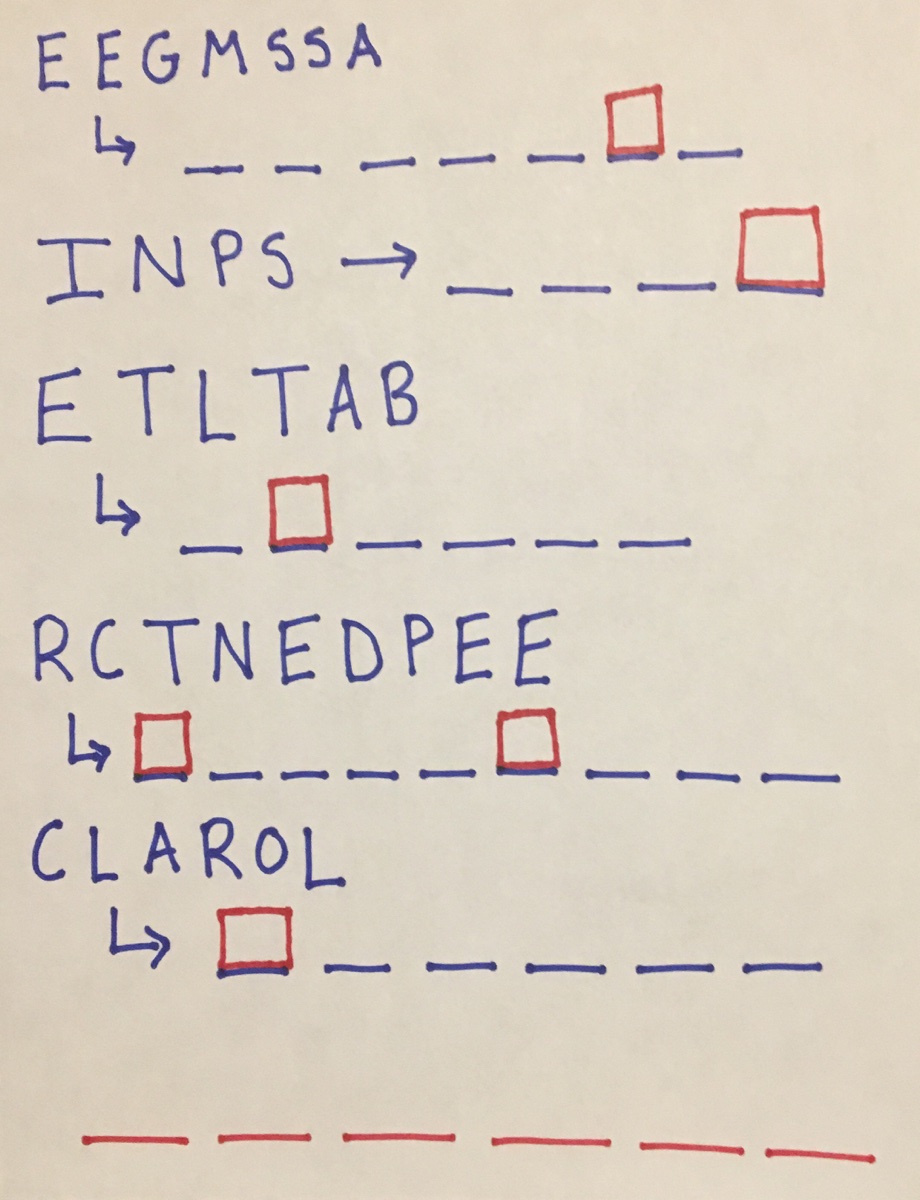 EEGMSSA
INPS →
ETLTAB
RCTNEDPEE
CLAROL